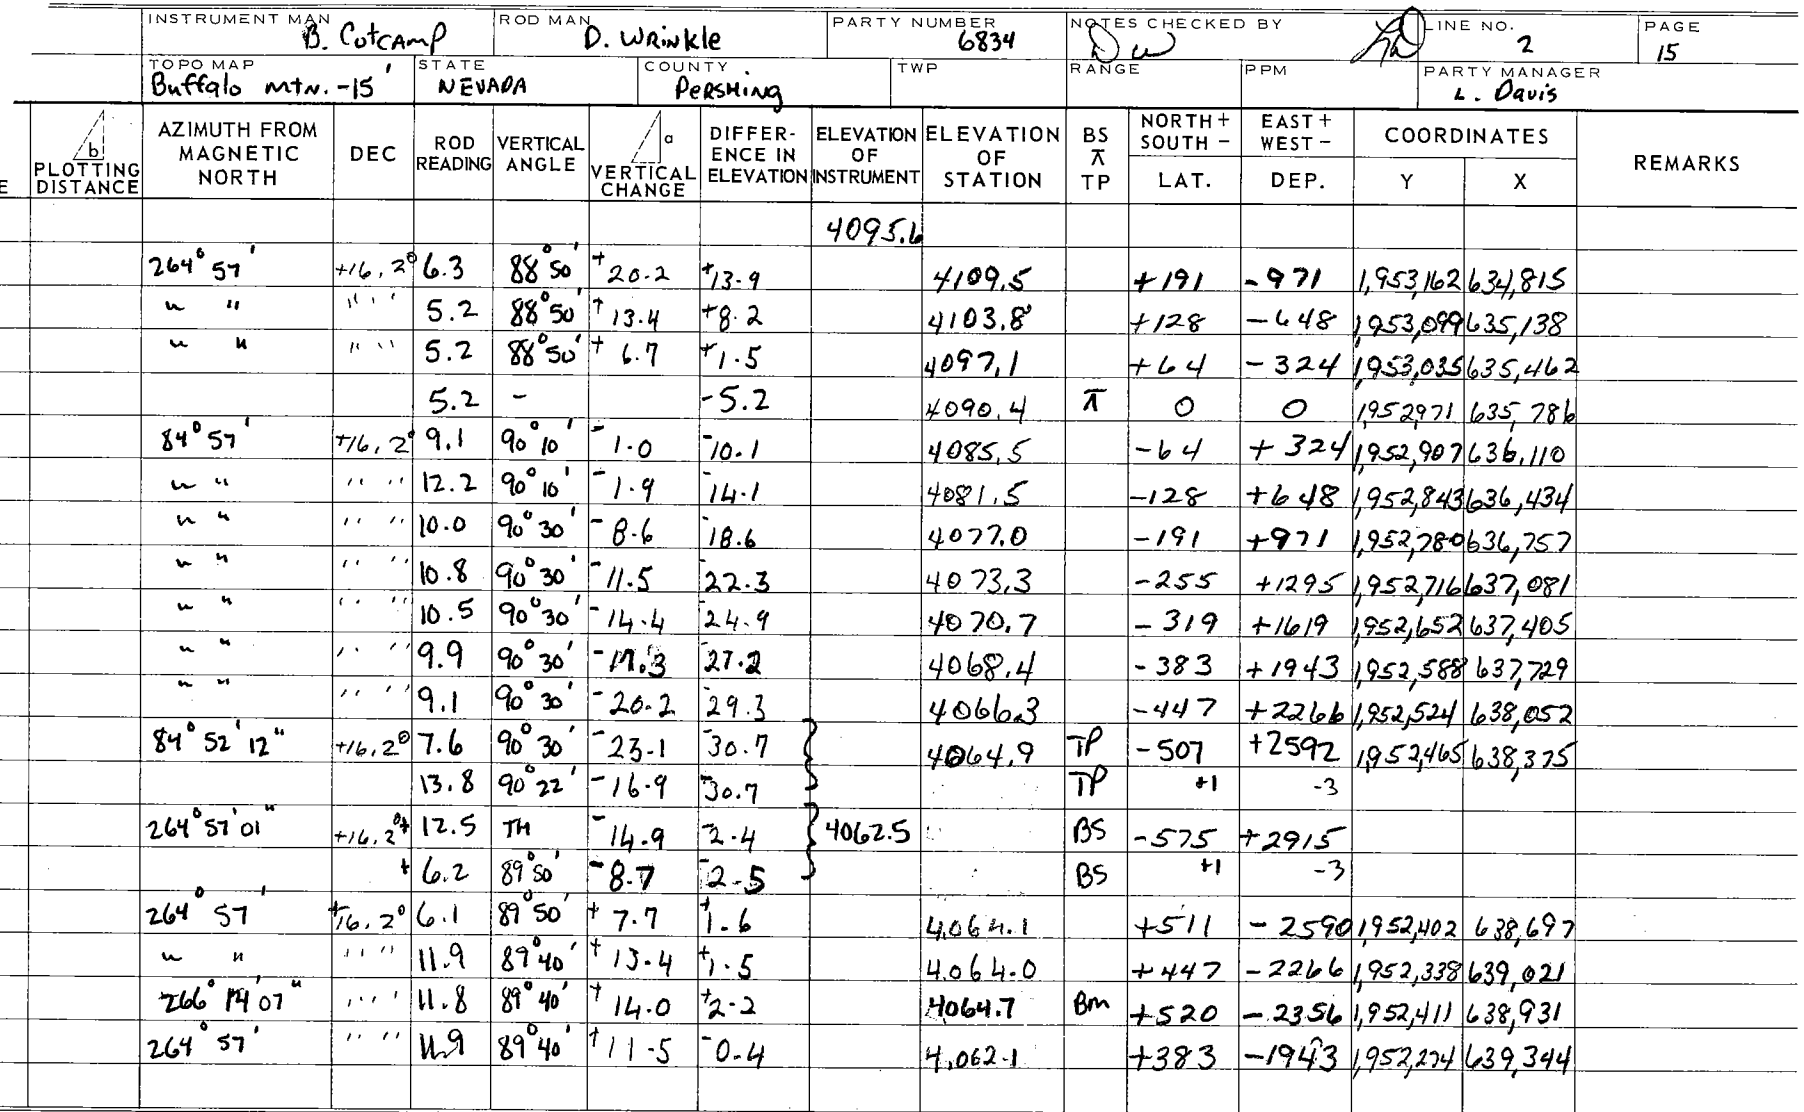 INSTRUMENT MAN ROD MAN PARTY NUMBER NOTES CHECKED BY LINE NO. PAGE
B. Cotcamp D. Wrinkle 6834 DW 2 15
TOPO MAP STATE COUNTY TWP RANGE PPM PARTY MANAGER
Buffalo mtn. -15' NEVADA PERSHING L. Davis
b PLOTTING DISTANCE AZIMUTH FROM MAGNETIC NORTH DEC ROD READING VERTICAL ANGLE a VERTICAL CHANGE DIFFER-ENCE IN ELEVATION ELEVATION OF INSTRUMENT ELEVATION OF STATION BS ⊼ TP NORTH + SOUTH - LAT. EAST + WEST - DEP. COORDINATES Y X REMARKS
4095.6
264° 57' +16.2° 6.3 88° 50' +20.2 +13.9 4109.5 +191 -971 1,953,162 634,815
" " " " 5.2 88° 50' +13.4 +8.2 4103.8 +128 -648 1,953,099 635,138
" " " " 5.2 88° 50' +6.7 +1.5 4097.1 +64 -324 1,953,035 635,462
5.2 - -5.2 4090.4 ⊼ 0 0 1,952,971 635,786
84° 57' +16.2° 9.1 90° 10' -1.0 -10.1 4085.5 -64 +324 1,952,907 636,110
" " " " 12.2 90° 10' -1.9 -14.1 4081.5 -128 +648 1,952,843 636,434
" " " " 10.0 90° 30' -8.6 -18.6 4077.0 -191 +971 1,952,780 636,757
" " " " 10.8 90° 30' -11.5 -22.3 4073.3 -255 +1295 1,952,716 637,081
" " " " 10.5 90° 30' -14.4 -24.9 4070.7 -319 +1619 1,952,652 637,405
" " " " 9.9 90° 30' -17.3 -27.2 4068.4 -383 +1943 1,952,588 637,729
" " " " 9.1 90° 30' -20.2 -29.3 4066.3 -447 +2266 1,952,524 638,052
84° 52' 12" +16.2° 7.6 90° 30' -23.1 -30.7 4064.9 TP -507 +2592 1,952,465 638,375
13.8 90° 22' -16.9 -30.7 TP +1 -3
264° 57' 01" +16.2° + 12.5 TH -14.9 -2.4 4062.5 BS -575 +2915
+ 6.2 89° 50' -8.7 -2.5 BS +1 -3
264° 57' +16.2° 6.1 89° 50' +7.7 +1.6 4064.1 +511 -2590 1,952,402 638,697
" " " " 11.9 89° 40' +13.4 +1.5 4064.0 +447 -2266 1,952,338 639,021
266° 14' 07" " " 11.8 89° 40' +14.0 +2.2 4064.7 Bm +520 -2356 1,952,411 638,931
264° 57' " " 11.9 89° 40' +11.5 -0.4 4,062.1 +383 -1943 1,952,274 639,344